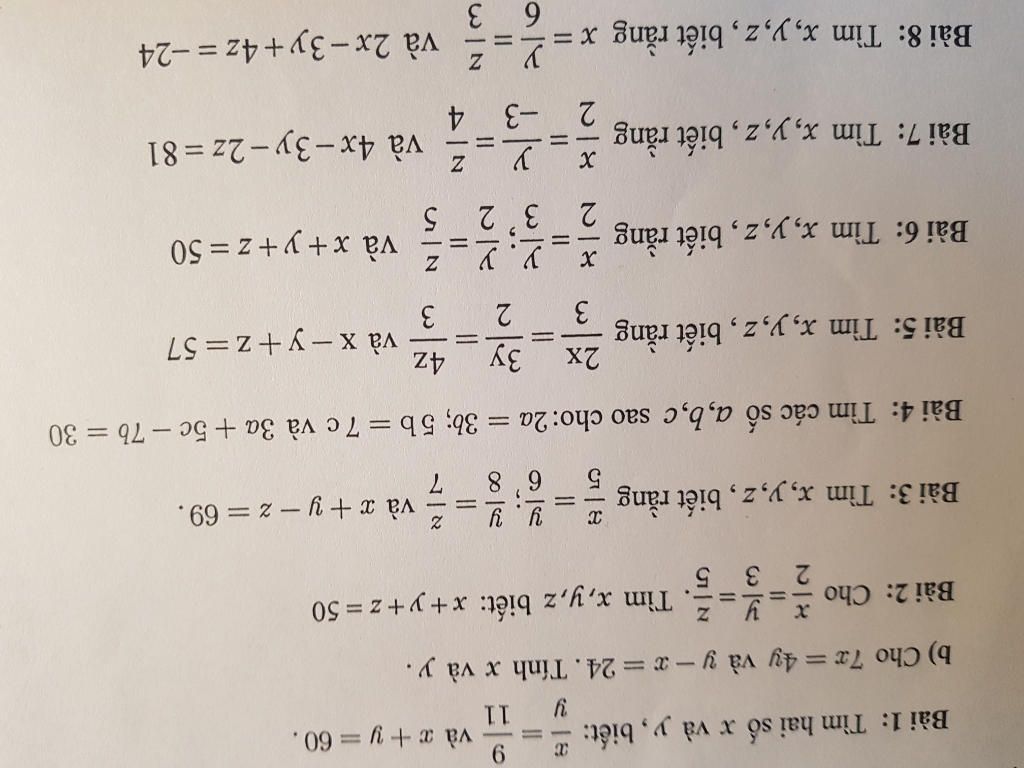 Bài 1: Tìm hai số x và y, biết: x/y = 9/11 và x + y = 60.
b) Cho 7x = 4y và y − x = 24. Tính x và y.
Bài 2: Cho x/2 = y/3 = z/5. Tìm x,y,z biết: x + y + z = 50
Bài 3: Tìm x,y,z, biết rằng x/5 = y/6; y/8 = z/7 và x + y − z = 69.
Bài 4: Tìm các số a,b,c sao cho: 2a = 3b; 5b = 7c và 3a + 5c − 7b = 30
Bài 5: Tìm x,y,z, biết rằng 2x/3 = 3y/2 = 4z/3 và x − y + z = 57
Bài 6: Tìm x,y,z, biết rằng x/2 = y/3; y/2 = z/5 và x + y + z = 50
Bài 7: Tìm x,y,z, biết rằng x/2 = y/−3 = z/4 và 4x − 3y − 2z = 81
Bài 8: Tìm x,y,z, biết rằng x = y/6 = z/3 và 2x − 3y + 4z = −24